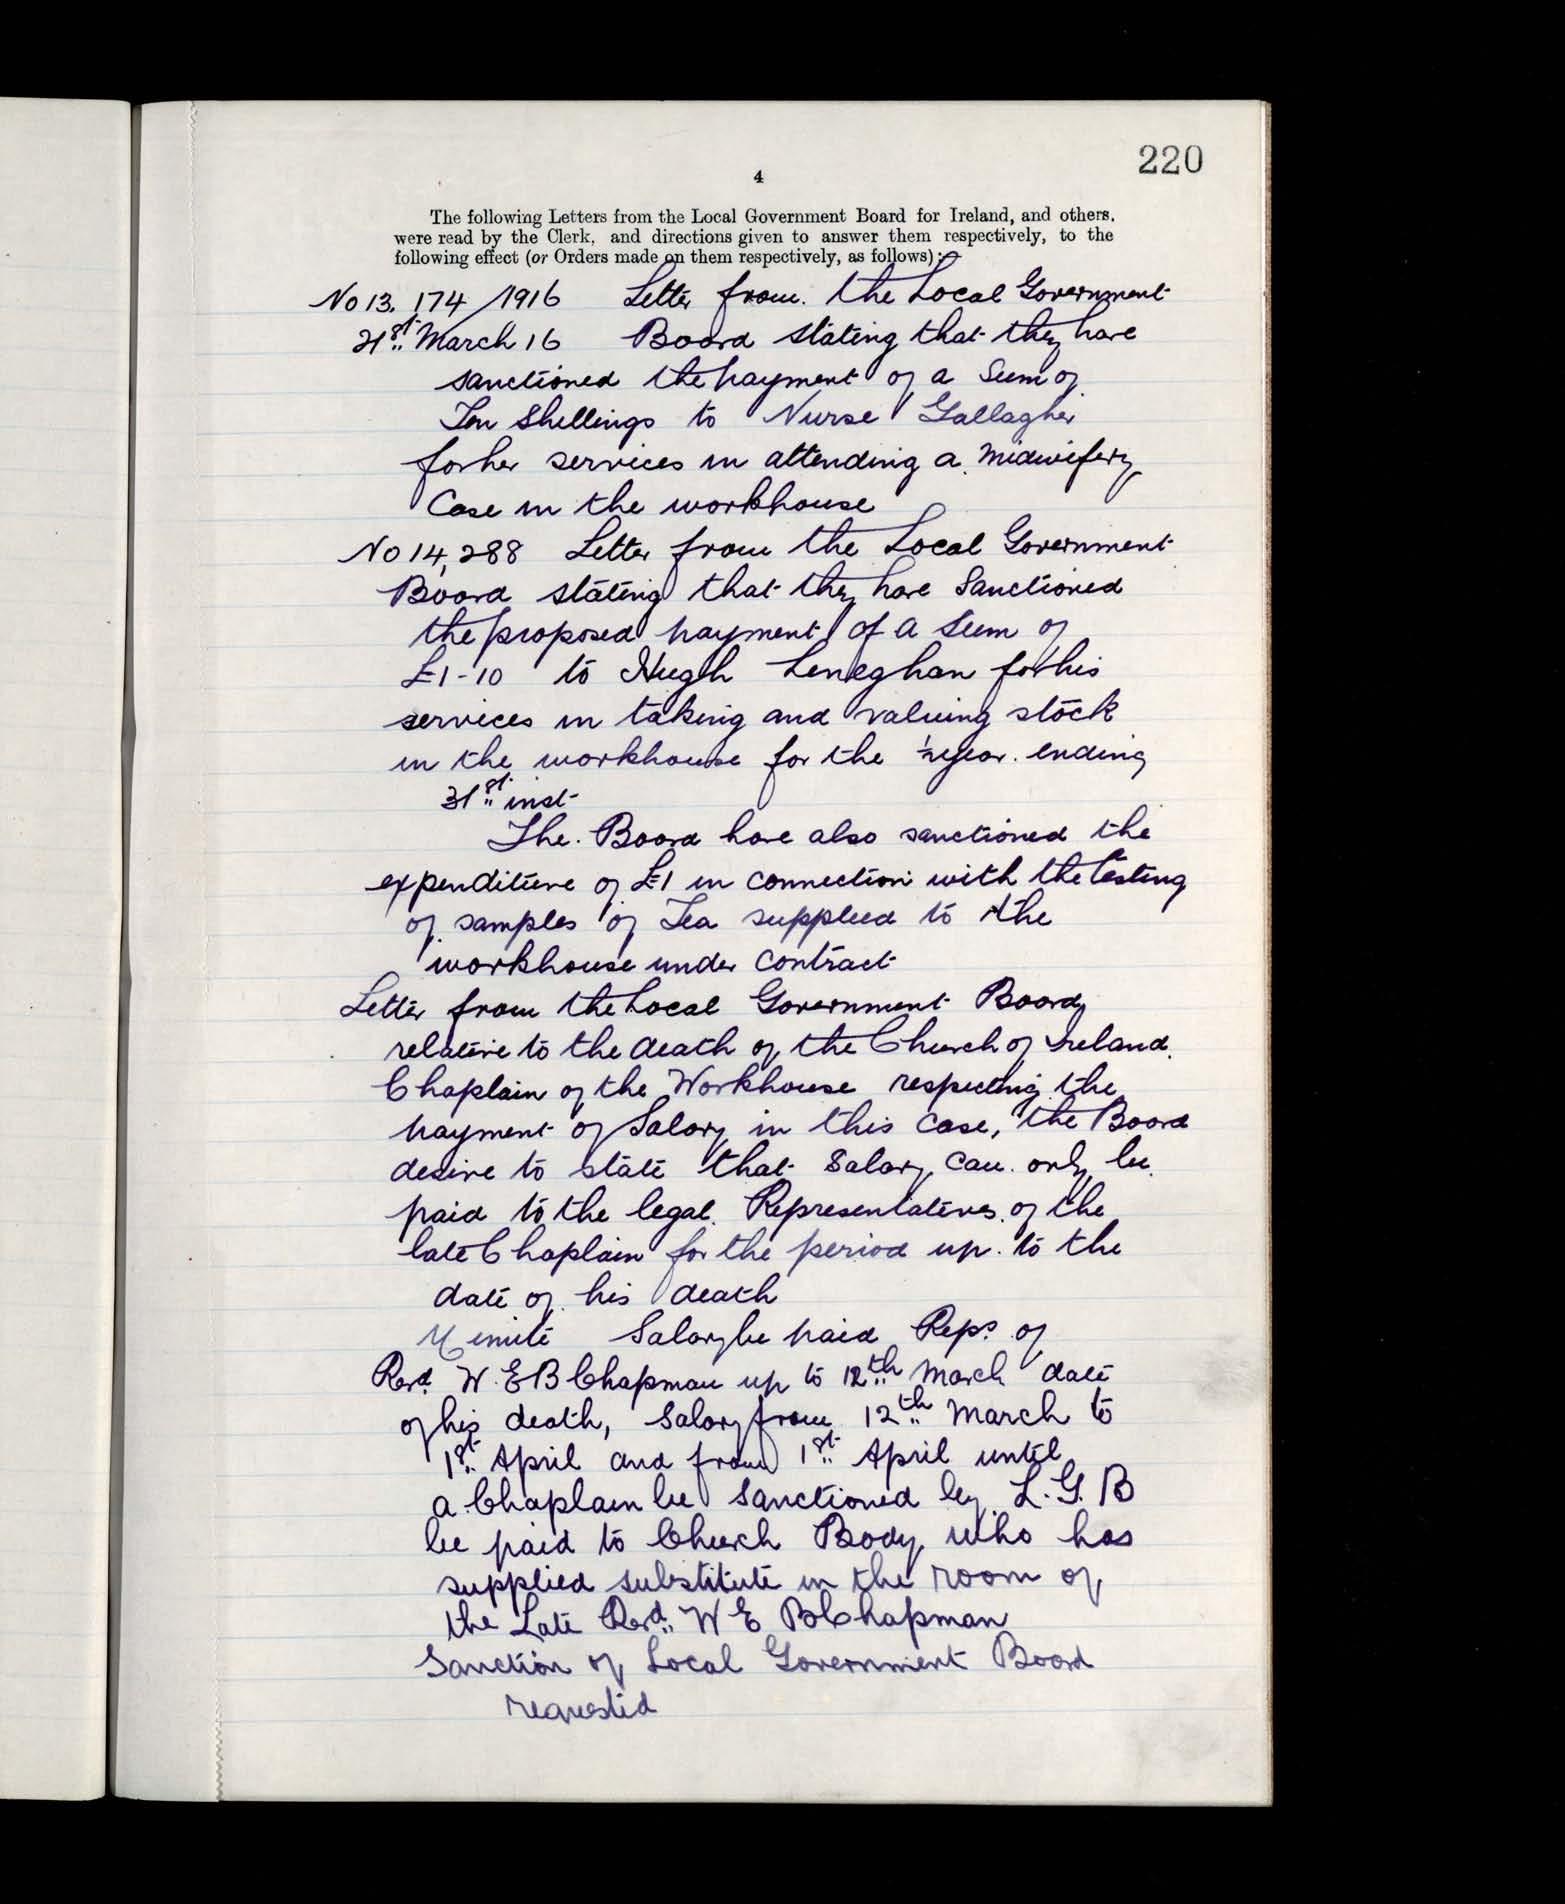 220
4
The following Letters from the Local Government Board for Ireland, and others,
were read by the Clerk, and directions given to answer them respectively, to the
following effect (or Orders made on them respectively, as follows):—
No 13,174/1916 Letter from the Local Government
21st March 16 Board stating that they have
sanctioned the payment of a Sum of
Ten Shillings to Nurse Gallagher
for her services in attending a midwifery
Case in the workhouse
No 14,288 Letter from the Local Government
Board stating that they have Sanctioned
the proposed payment of a Sum of
£1-10 to Hugh Leneghan for his
services in taking and valuing stock
in the workhouse for the ½ year ending
31st inst
The Board have also sanctioned the
expenditure of £1 in connection with the testing
of samples of Tea supplied to the
workhouse under contract
Letter from the Local Government Board
relative to the death of the Church of Ireland
Chaplain of the Workhouse respecting the
payment of Salary in this case, the Board
desire to state that Salary can only be
paid to the legal Representatives of the
late Chaplain for the period up to the
date of his death
Minute Salary be paid Reps of
Revd W. E B Chapman up to 12th March date
of his death, Salary from 12th March to
1st April and from 1st April until
a Chaplain be Sanctioned by L. G. B
be paid to Church Body who has
supplied substitute in the room of
the Late Revd W E B Chapman
Sanction of Local Government Board
requested